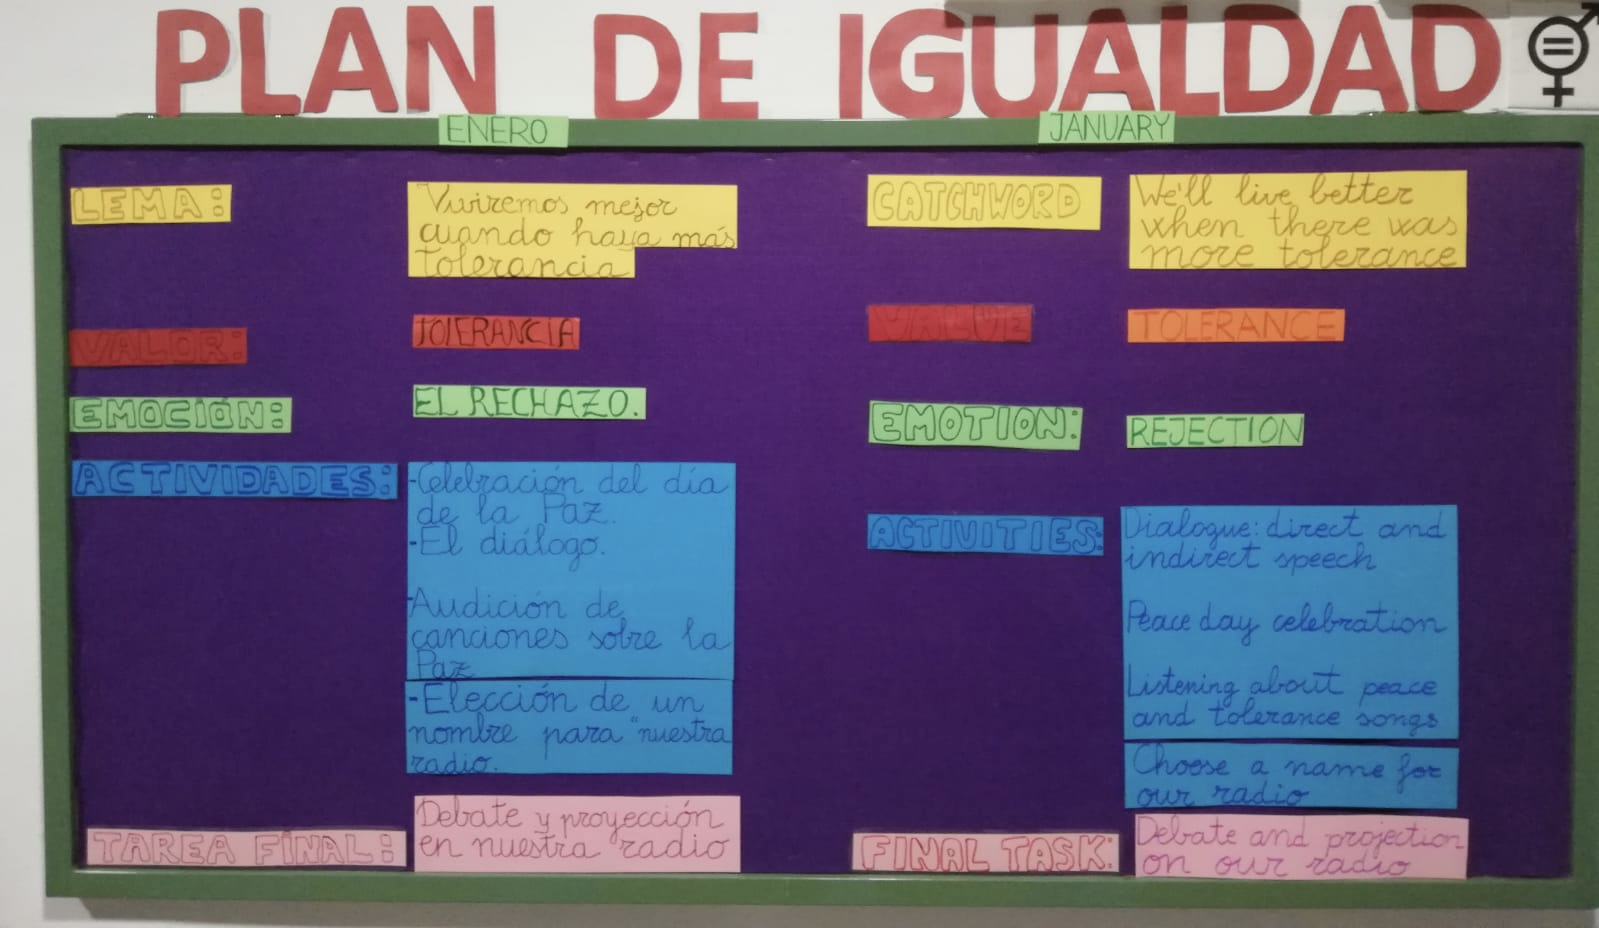 PLAN DE IGUALDAD
ENERO
LEMA:
Viviremos mejor
cuando haya más
tolerancia
VALOR:
TOLERANCIA
EMOCIÓN:
EL RECHAZO.
ACTIVIDADES:
-Celebración del día
de la Paz.
-El diálogo.
-Audición de
canciones sobre la
Paz
-Elección de un
nombre para "nuestra
radio.
TAREA FINAL:
Debate y proyección
en nuestra radio
JANUARY
CATCHWORD
We'll live better
when there was
more tolerance
VALUE
TOLERANCE
EMOTION:
REJECTION
ACTIVITIES:
Dialogue: direct and
indirect speech
Peace day celebration
Listening about peace
and tolerance songs
Choose a name for
our radio
FINAL TASK:
Debate and projection
on our radio